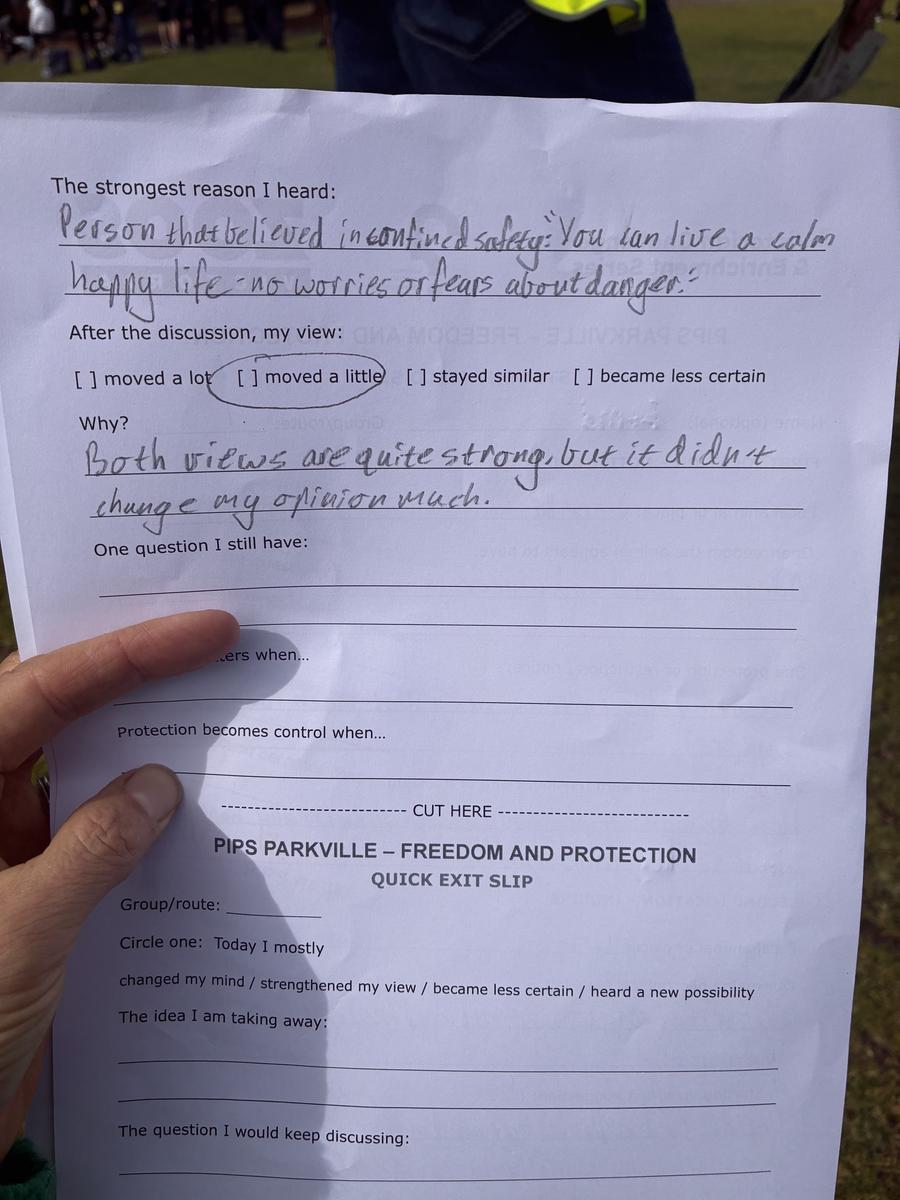 The strongest reason I heard:
Person that believed in confined safety: "You can live a calm
happy life - no worries or fears about danger."
After the discussion, my view:
[ ] moved a lot [ ] moved a little [ ] stayed similar [ ] became less certain
Why?
Both views are quite strong, but it didn't
change my opinion much.
One question I still have:
when...
Protection becomes control when...
-------------------------- CUT HERE --------------------------
PIPS PARKVILLE – FREEDOM AND PROTECTION
QUICK EXIT SLIP
Group/route: ____________
Circle one: Today I mostly
changed my mind / strengthened my view / became less certain / heard a new possibility
The idea I am taking away:
The question I would keep discussing: